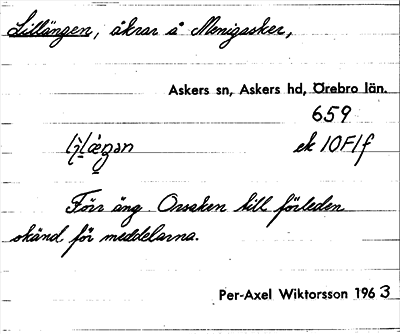 Lillängen, åkrar å Menigasker,
Askers sn, Askers hd, Örebro län.
659
ek 10F1f
Förr äng. Orsaken till förleden
okänd för meddelarna.
Per-Axel Wiktorsson 1963